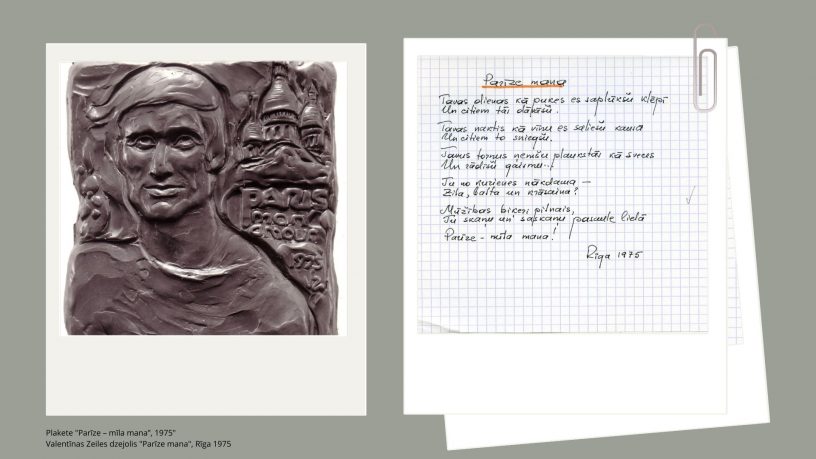 PARIS
mon
amour
1975
Parīze mana
Tavas dienas kā puķes es saplūkšu klēpī
Un citiem tās dāļāšu.
Tavas naktis kā vīnu es saliešu kausā
Un citiem to sniegšu.
Tavus torņus ņemšu plaukstās kā sveces
Un rādīšu gaismu.
Tu no kurienes nākdama –
Zila, balta un krāsaina?
Mūžības biķeri pilnais,
Tu skaņu un sapņaņu pasaule lielā
Parīze – mīla mana!
Rīga 1975
Plakete "Parīze – mīla mana", 1975"
Valentīnas Zeiles dzejolis "Parīze mana", Rīga 1975